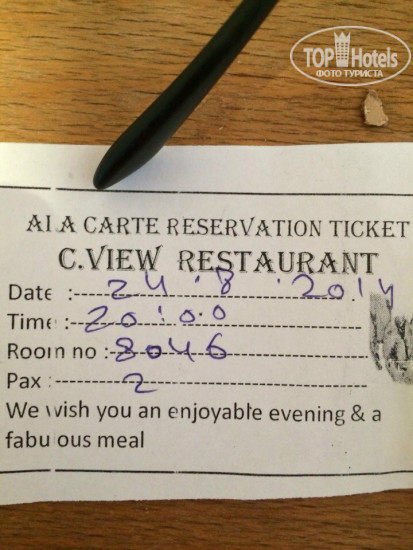 TOP Hotels
ФОТО ТУРИСТА
ALA CARTE RESERVATION TICKET
C.VIEW RESTAURANT
Date :- 24.8.2014
Time :- 20:00
Room no :- 8046
Pax :- 2
We wish you an enjoyable evening & a
fabulous meal